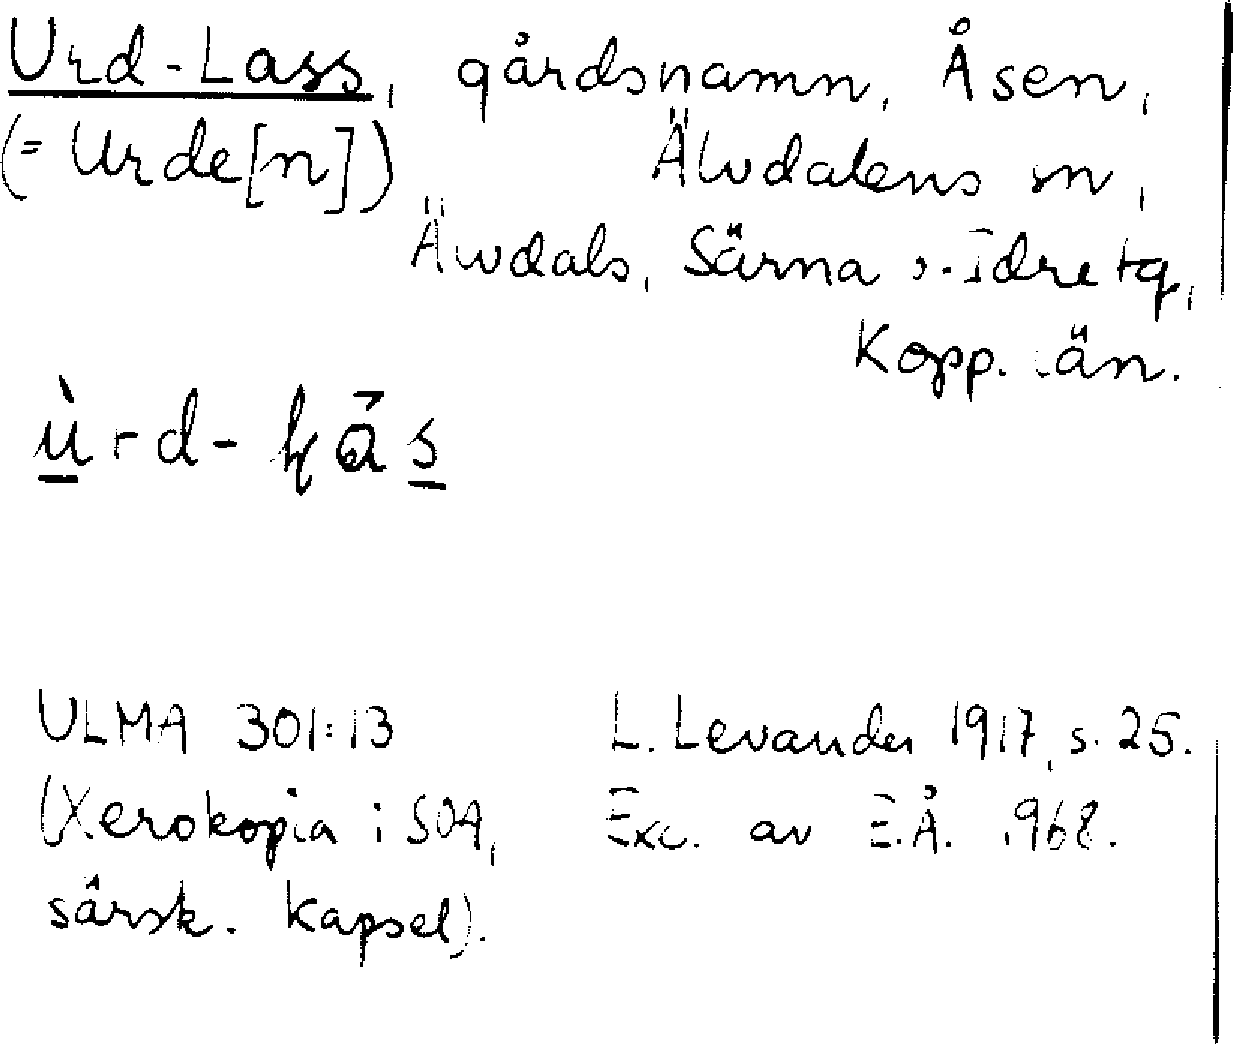 Urd-Lass, gårdsnamn, Åsen,
(= Urde[n]) Älvdalens sn,
Älvdals, Särna o. Idre tg,
Kopp. län.
ULMA 301:13 L. Levander 1917, s. 25.
(Xerokopia i SOA, Exc. av E.Å. 1968.
särsk. kapsel).